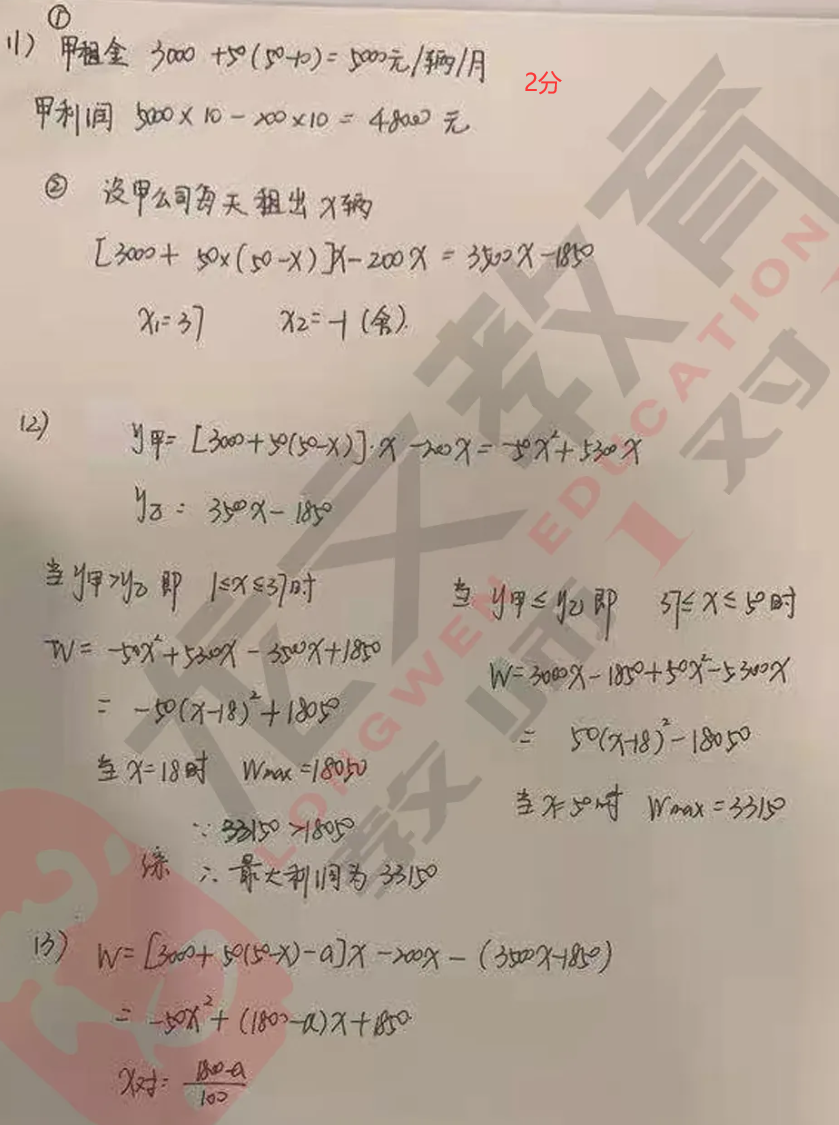 ①
(1) 甲租金 3000+50(50-10)=5000元/辆/月
2分
甲利润 5000×10-200×10=48000元
② 设甲公司每天租出x辆
[3000+50×(50-x)]x-200x=3500x-1850
x₁=37 x₂=-1(舍).
(2) y甲=[3000+50(50-x)]·x-200x=-50x²+5300x
y乙=3500x-1850
当y甲>y乙即 1≤x≤37时
W=-50x²+5300x-3500x+1850
=-50(x-18)²+18050
当x=18时 Wmax=18050
当y甲≤y乙即 37≤x≤50时
W=3000x-1850+50x²-5300x
= 50(x-18)²-18050
当x=50时 Wmax=33150
∵33150>18050
综 ∴最大利润为33150
(3) W=[3000+50(50-x)-a]x-200x-(3500x-1850)
=-50x²+(1800-a)x+1850
x对=(1800-a)/100
龙文教育
LONGWEN EDUCATION
教师1对